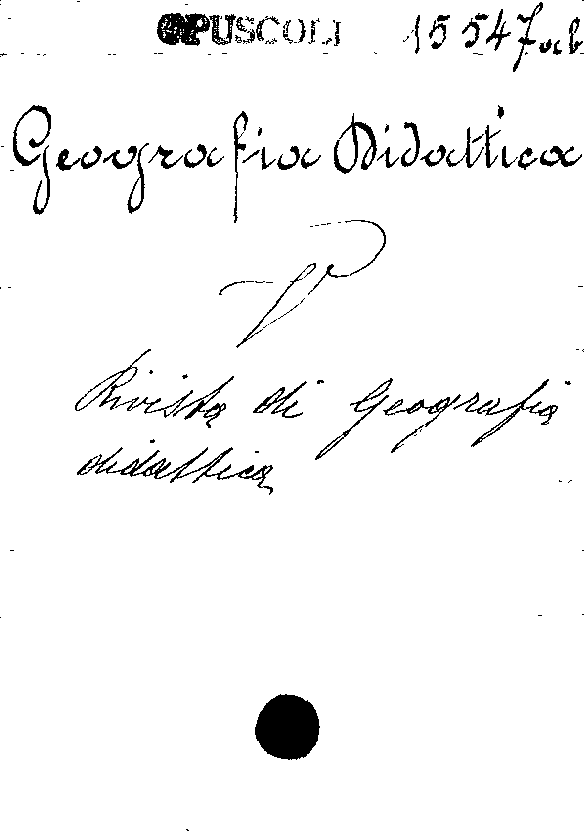 OPUSCOLI 15 547 ab
Geografia Didattica
V
Rivista di Geografia
didattica